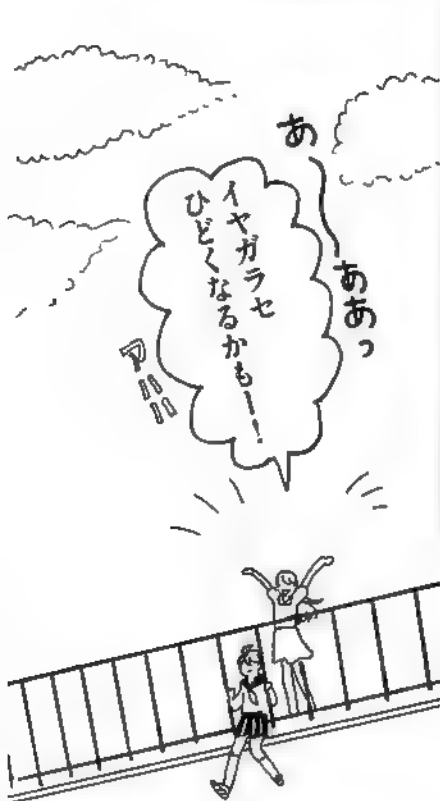 あ〜ああっ
イヤガラセ
ひどくなるかもー!
アハハ